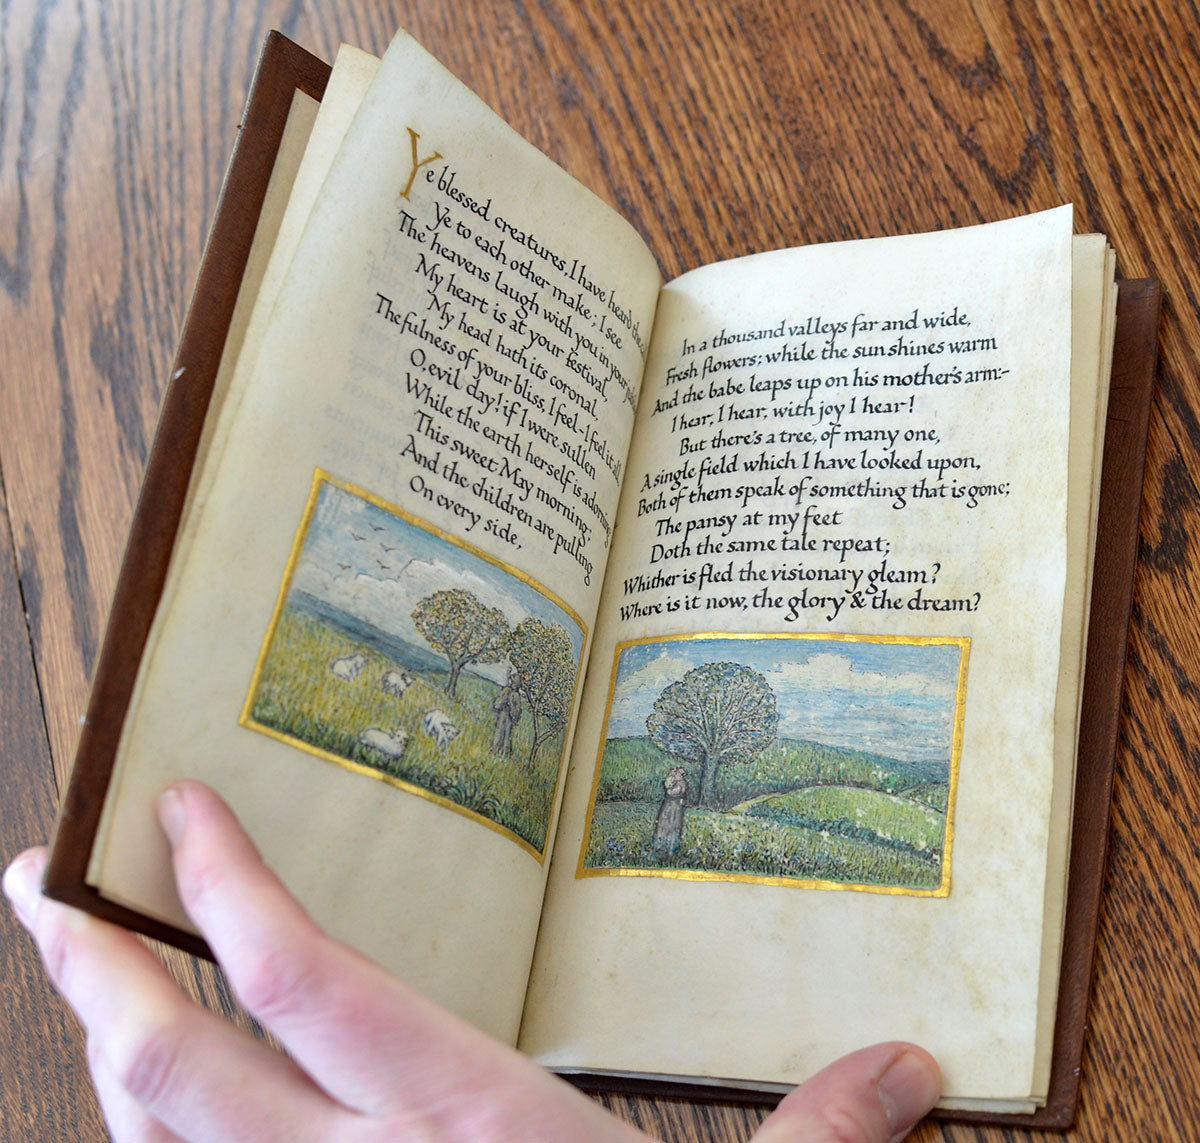 Ye blessed creatures, I have heard the
Ye to each other make; I see
The heavens laugh with you in your
My heart is at your festival,
My head hath its coronal,
The fulness of your bliss, I feel–I feel it all.
O, evil day! if I were sullen
While the earth herself is adorning
This sweet May morning;
And the children are pulling
On every side,
In a thousand valleys far and wide,
Fresh flowers; while the sun shines warm
And the babe leaps up on his mother's arm:–
I hear, I hear, with joy I hear!
But there's a tree, of many one,
A single field which I have looked upon,
Both of them speak of something that is gone;
The pansy at my feet
Doth the same tale repeat;
Whither is fled the visionary gleam?
Where is it now, the glory & the dream?